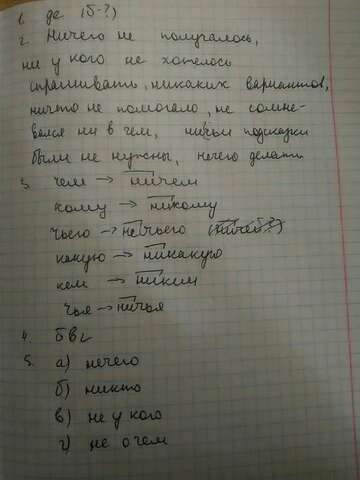 1. де (б-?)
2. Ничего не получалось,
ни у кого не хотелось
спрашивать, никаких вариантов,
ничто не помогало, не сомне-
вался ни в чем, ничьи подсказки
были не нужны, нечего делать
3. чем → ничем
кому → никому
чьего → не чьего (ничей?)
какую → никакую
кем → никим
чья → ничья
4. бвг
5. а) нечего
б) никто
в) не у кого
г) не о чем